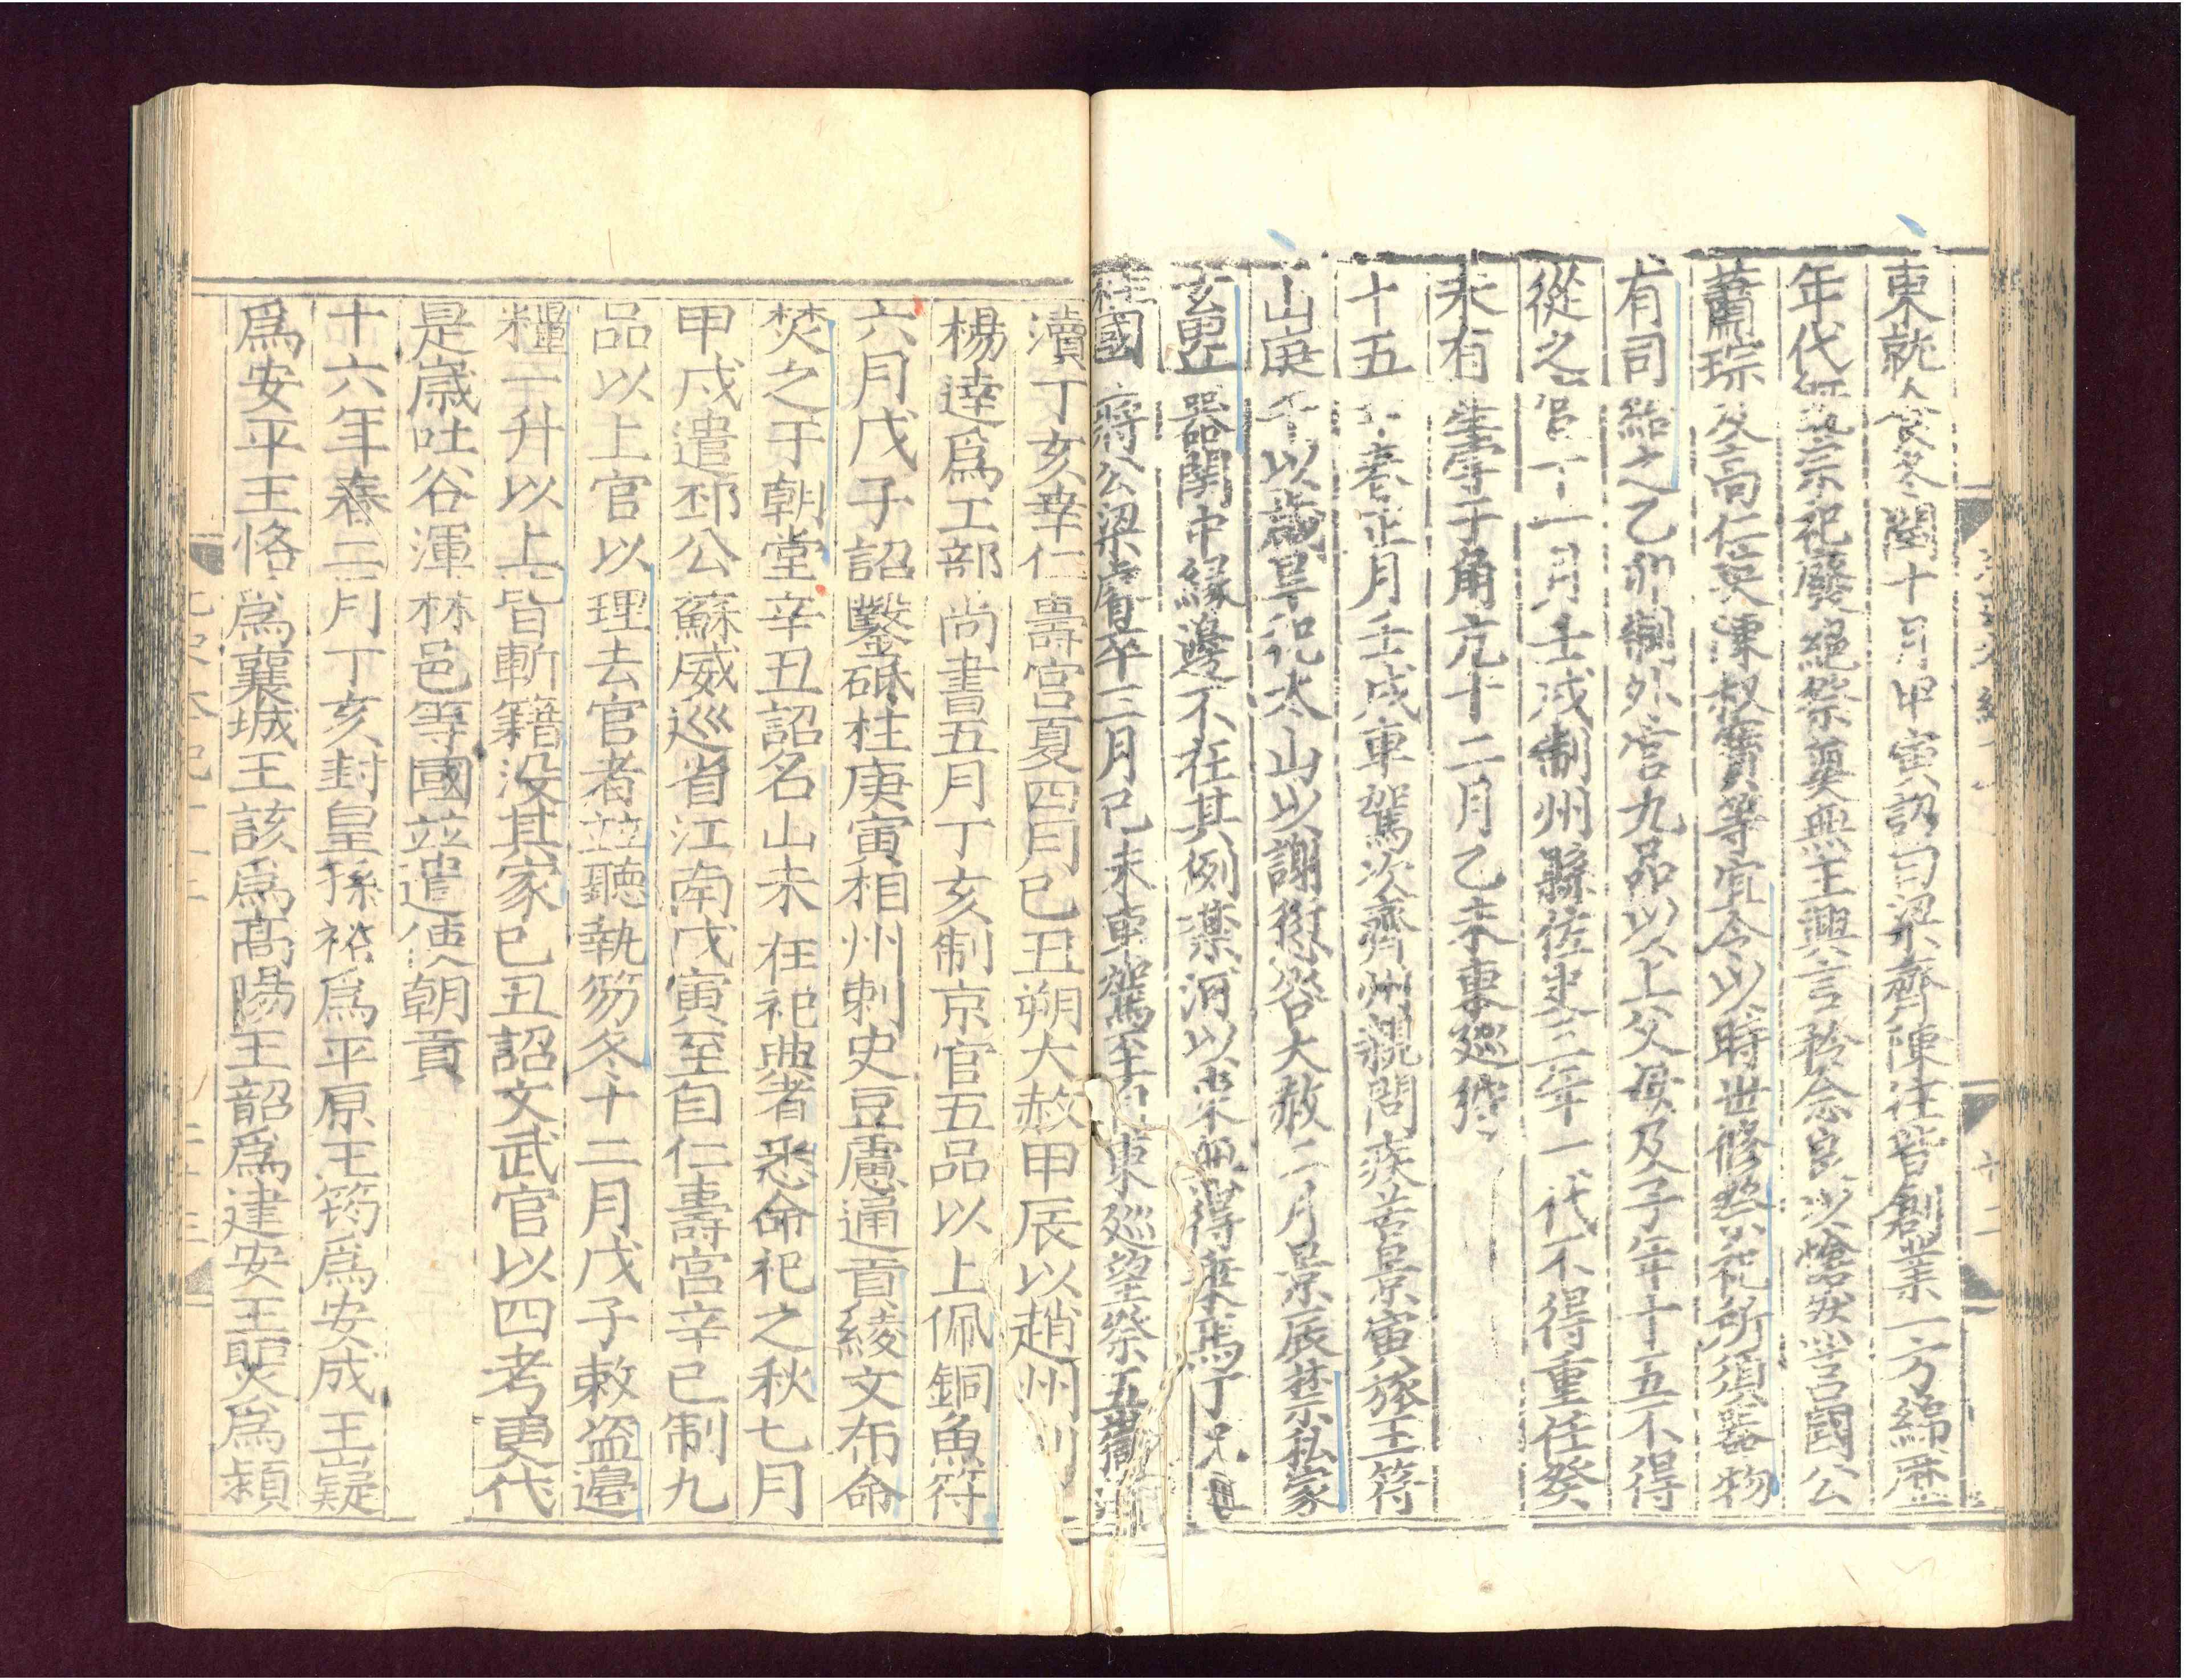 東就食冬閏十月甲寅詔曰梁齊陳往皆創業一方綿歷
年代既宗祀廢絕祭奠無主興言矜念良以愴然莒國公
蕭琮及高仁英陳叔寶等宜令以時世修祭祀所須器物
有司給之乙卯制外官九品以上父母及子年十五不得
從之官十一月壬戌制州縣佐史三年一代不得重任癸
未有星孛于角亢十二月乙未東巡狩
十五年春正月壬戌車駕次齊州親問疾苦景寅旅王符
山庚午以歲旱祀太山以謝愆咎大赦二月景辰禁私家
器關中緣邊不在其例禁河以東無得乘馬丁
柱國蔣公梁睿卒三月己未車駕至自東巡望祭五嶽
瀆丁亥幸仁壽宮夏四月己丑朔大赦甲辰以趙州刺
楊達爲工部尚書五月丁亥制京官五品以上佩銅魚符
六月戊子詔鑿砥柱庚寅相州刺史豆盧通貢綾文布命
焚之于朝堂辛丑詔名山未在祀典者悉命祀之秋七月
甲戌遣邳公蘇威巡省江南戊寅至自仁壽宮辛巳制九
品以上官以理去官者並聽執笏冬十二月戊子敕盜邊
糧一升以上皆斬籍没其家己丑詔文武官以四考更代
是歲吐谷渾林邑等國並遣使朝貢
十六年春二月丁亥封皇孫裕爲平原王筠爲安成王嶷
爲安平王恪爲襄城王該爲高陽王韶爲建安王煚爲潁